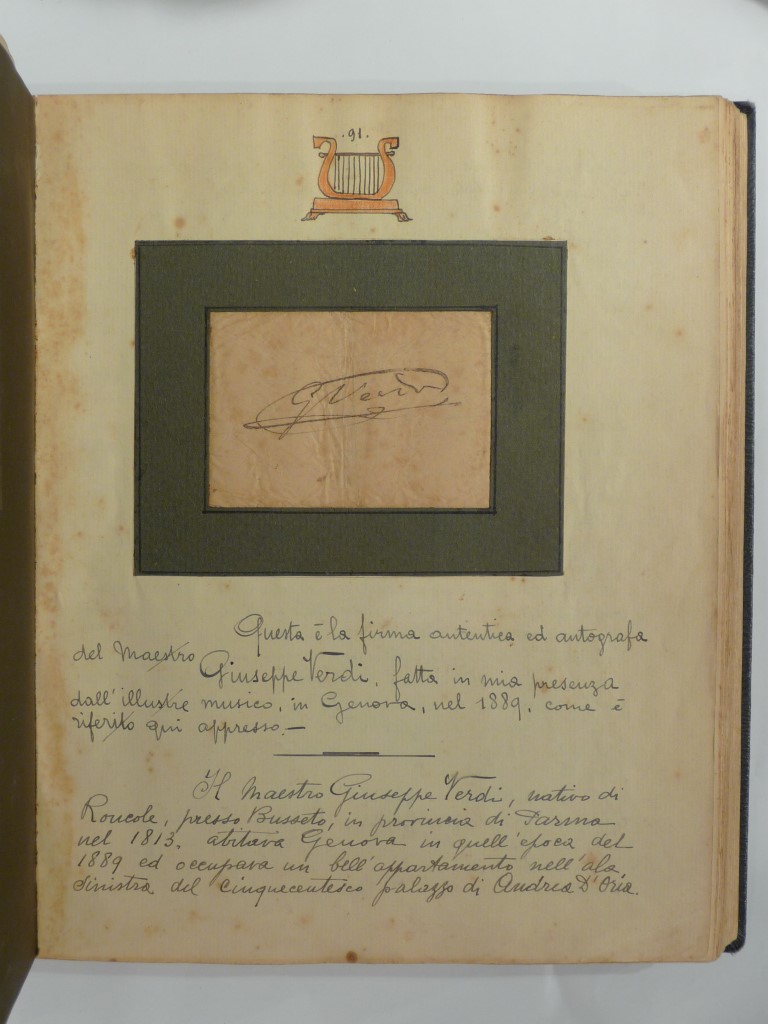 .91.
G Verdi
Questa è la firma autentica ed autografa
del Maestro Giuseppe Verdi, fatta in mia presenza
dall'illustre musico, in Genova, nel 1889, come è
riferito qui appresso.—
Il Maestro Giuseppe Verdi, nativo di
Roncole, presso Busseto, in provincia di Parma
nel 1813, abitava Genova in quell'epoca del
1889 ed occupava un bell'appartamento nell'ala
sinistra del cinquecentesco palazzo di Andrea D'Oria.